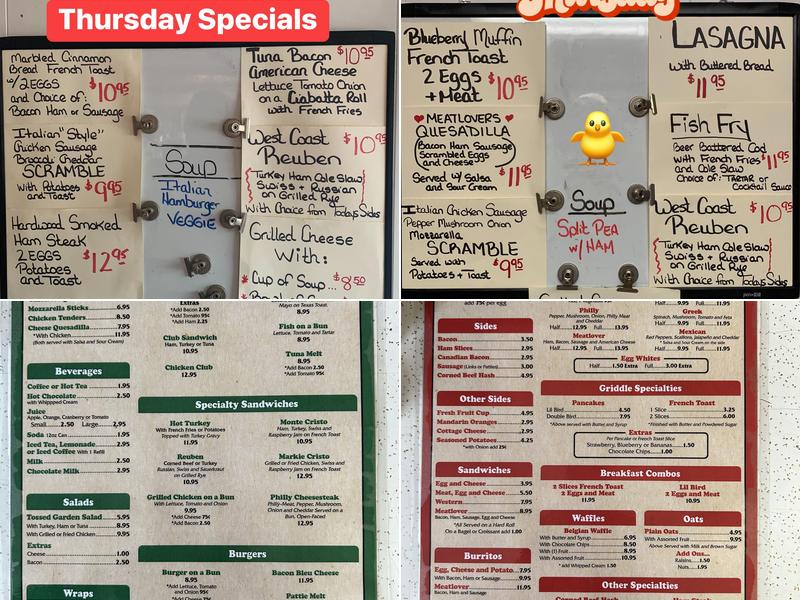 Thursday Specials
Marbled Cinnamon
Bread French Toast
w/ 2 EGGS
and Choice of:
Bacon Ham or Sausage
$10.95
Italian "Style"
Chicken Sausage
Broccoli Cheddar
SCRAMBLE
with Potatoes
and Toast
$9.95
Hardwood Smoked
Ham Steak
2 EGGS
Potatoes
and Toast
$12.95
Soup
Italian
Hamburger
VEGGIE
Tuna Bacon $10.95
American Cheese
Lettuce Tomato Onion
on a Ciabatta Roll
with French Fries
West Coast
Reuben
$10.95
Turkey Ham Cole Slaw
Swiss + Russian
on Grilled Rye
With Choice from Todays Sides
Grilled Cheese
With:
* Cup of Soup... $8.50
Blueberry Muffin
French Toast
2 Eggs
+ Meat
$10.95
♥ MEATLOVERS ♥
QUESADILLA
Bacon Ham Sausage
Scrambled Eggs
and Cheese
Served w/ Salsa
and Sour Cream
$11.95
Italian Chicken Sausage
Pepper Mushroom Onion
Mozzarella
SCRAMBLE
Served with
Potatoes + Toast
$9.95
Soup
Split Pea
w/ HAM
LASAGNA
with Buttered Bread
$11.95
Fish Fry
Beer Battered Cod
with French Fries
and Cole Slaw
$11.95
Choice of: TARTAR or
Cocktail Sauce
West Coast
Reuben
$10.95
Turkey Ham Cole Slaw
Swiss + Russian
on Grilled Rye
With Choice from Todays Sides
Mozzarella Sticks 6.95
Chicken Tenders 8.50
Cheese Quesadilla 7.95
*With Chicken 11.95
(Both served with Salsa and Sour Cream)
Beverages
Coffee or Hot Tea 1.95
Hot Chocolate 2.50
with Whipped Cream
Juice
Apple, Orange, Cranberry or Tomato
Small 2.50 Large 2.95
Soda 12oz Can 1.95
Iced Tea, Lemonade
or Iced Coffee With 1 Refill 2.95
Milk 2.50
Chocolate Milk 2.95
Salads
Tossed Garden Salad 5.95
With Turkey, Ham or Tuna 8.95
With Grilled or Fried Chicken 9.95
Extras
Cheese 1.00
Bacon 2.50
Wraps
Extras
*Add Bacon 2.50
*Add Tomato 95¢
*Add Ham 2.25
Club Sandwich
Ham, Turkey or Tuna
10.95
Chicken Club
12.95
Mayo on Texas Toast
8.95
Fish on a Bun
Lettuce, Tomato and Tartar
8.95
Tuna Melt
8.95
*Add Bacon 2.50
*Add Tomato 95¢
Specialty Sandwiches
Hot Turkey
With French Fries or Potatoes
Topped with Turkey Gravy
11.95
Reuben
Corned Beef or Turkey
Russian, Swiss and Sauerkraut
on Grilled Rye
10.95
Grilled Chicken on a Bun
With Lettuce, Tomato and Onion
9.95
*Add Cheese 75¢
*Add Bacon 2.50
Monte Cristo
Ham, Turkey, Swiss and
Raspberry Jam on French Toast
10.95
Markie Cristo
Grilled or Fried Chicken, Swiss and
Raspberry Jam on French Toast
12.95
Philly Cheesesteak
Philly-Meat, Pepper, Mushroom,
Onion and Cheddar Served on a
Bun, Open-Faced
12.95
Burgers
Burger on a Bun
8.95
*Add Lettuce, Tomato
and Onion 95¢
*Add Cheese 75¢
Bacon Bleu Cheese
11.95
Pattie Melt
add 75¢ per egg
Sides
Bacon 3.50
Ham Slices 2.95
Canadian Bacon 2.95
Sausage (Links or Patties) 3.00
Corned Beef Hash 4.95
Other Sides
Fresh Fruit Cup 4.95
Mandarin Oranges 2.95
Cottage Cheese 2.95
Seasoned Potatoes 4.25
*with Onion add 25¢
Sandwiches
Egg and Cheese 3.95
Meat, Egg and Cheese 5.50
Western 7.95
Meatlover 8.95
Bacon, Ham, Sausage, Egg and Cheese
*All Served on a Hard Roll
On a Bagel or Croissant add 1.00
Burritos
Egg, Cheese and Potato 7.95
With Bacon, Ham or Sausage 9.95
Meatlover 11.95
Bacon, Ham and Sausage
Philly
Pepper, Mushroom, Onion, Philly Meat
and Cheddar
Half 12.95 Full 13.95
Meatlover
Ham, Bacon, Sausage and American Cheese
Half 12.95 Full 13.95
Half 9.95 Full 11.95
Greek
Spinach, Mushroom, Tomato and Feta
Half 9.95 Full 11.95
Mexican
Red Peppers, Scallions, Jalapeño and Cheddar
*Salsa and Sour Cream on the side
Half 9.95 Full 11.95
Egg Whites
Half 1.50 Extra Full 3.00 Extra
Griddle Specialties
Pancakes
Lil Bird 4.50
Double Bird 7.95
*Above served with Butter and Syrup
French Toast
1 Slice 3.25
2 Slices 6.00
*Finished with Butter and Powdered Sugar
Extras
Per Pancake or French Toast Slice
Strawberry, Blueberry or Banana 1.50
Chocolate Chips 1.00
Breakfast Combos
2 Slices French Toast
2 Eggs and Meat
11.95
Lil Bird
2 Eggs and Meat
10.95
Waffles
Belgian Waffle
With Butter and Syrup 6.95
With Chocolate Chips 8.50
With (1) Fruit 8.95
With Assorted Fruit 10.95
* add Whipped Cream 1.50
Oats
Plain Oats 4.95
With Assorted Fruit 9.95
Above Served with Milk and Brown Sugar
Add Ons...
Raisins 1.50
Nuts 1.95
Other Specialties